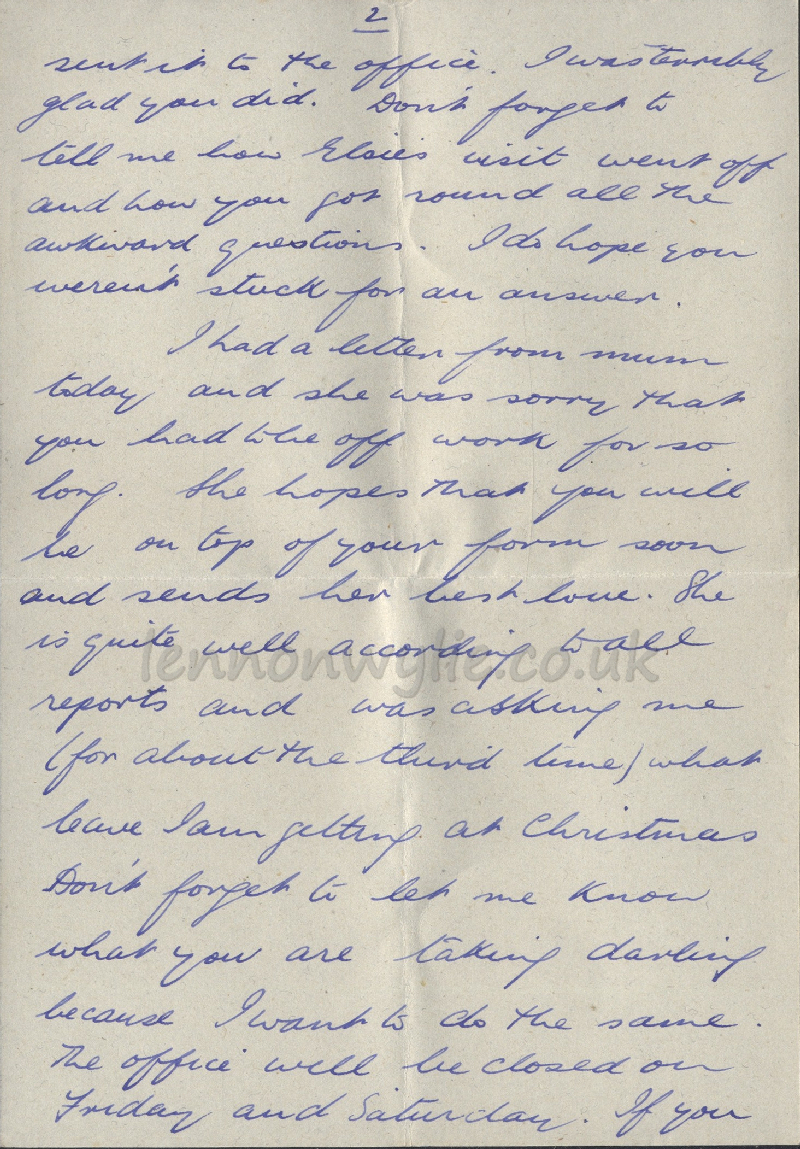 2
sent it to the office. I was terribly
glad you did. Don't forget to
tell me how Elsies visit went off
and how you got round all the
awkward questions. I do hope you
weren't stuck for an answer.
I had a letter from mum
today and she was sorry that
you had to be off work for so
long. She hopes that you will
be on top of your form soon
and sends her best love. She
is quite well according to all
lennonwylie.co.uk
reports and was asking me
(for about the third time) what
leave I am getting at Christmas
Don't forget to let me know
what you are taking darling
because I want to do the same.
The office will be closed on
Friday and Saturday. If you